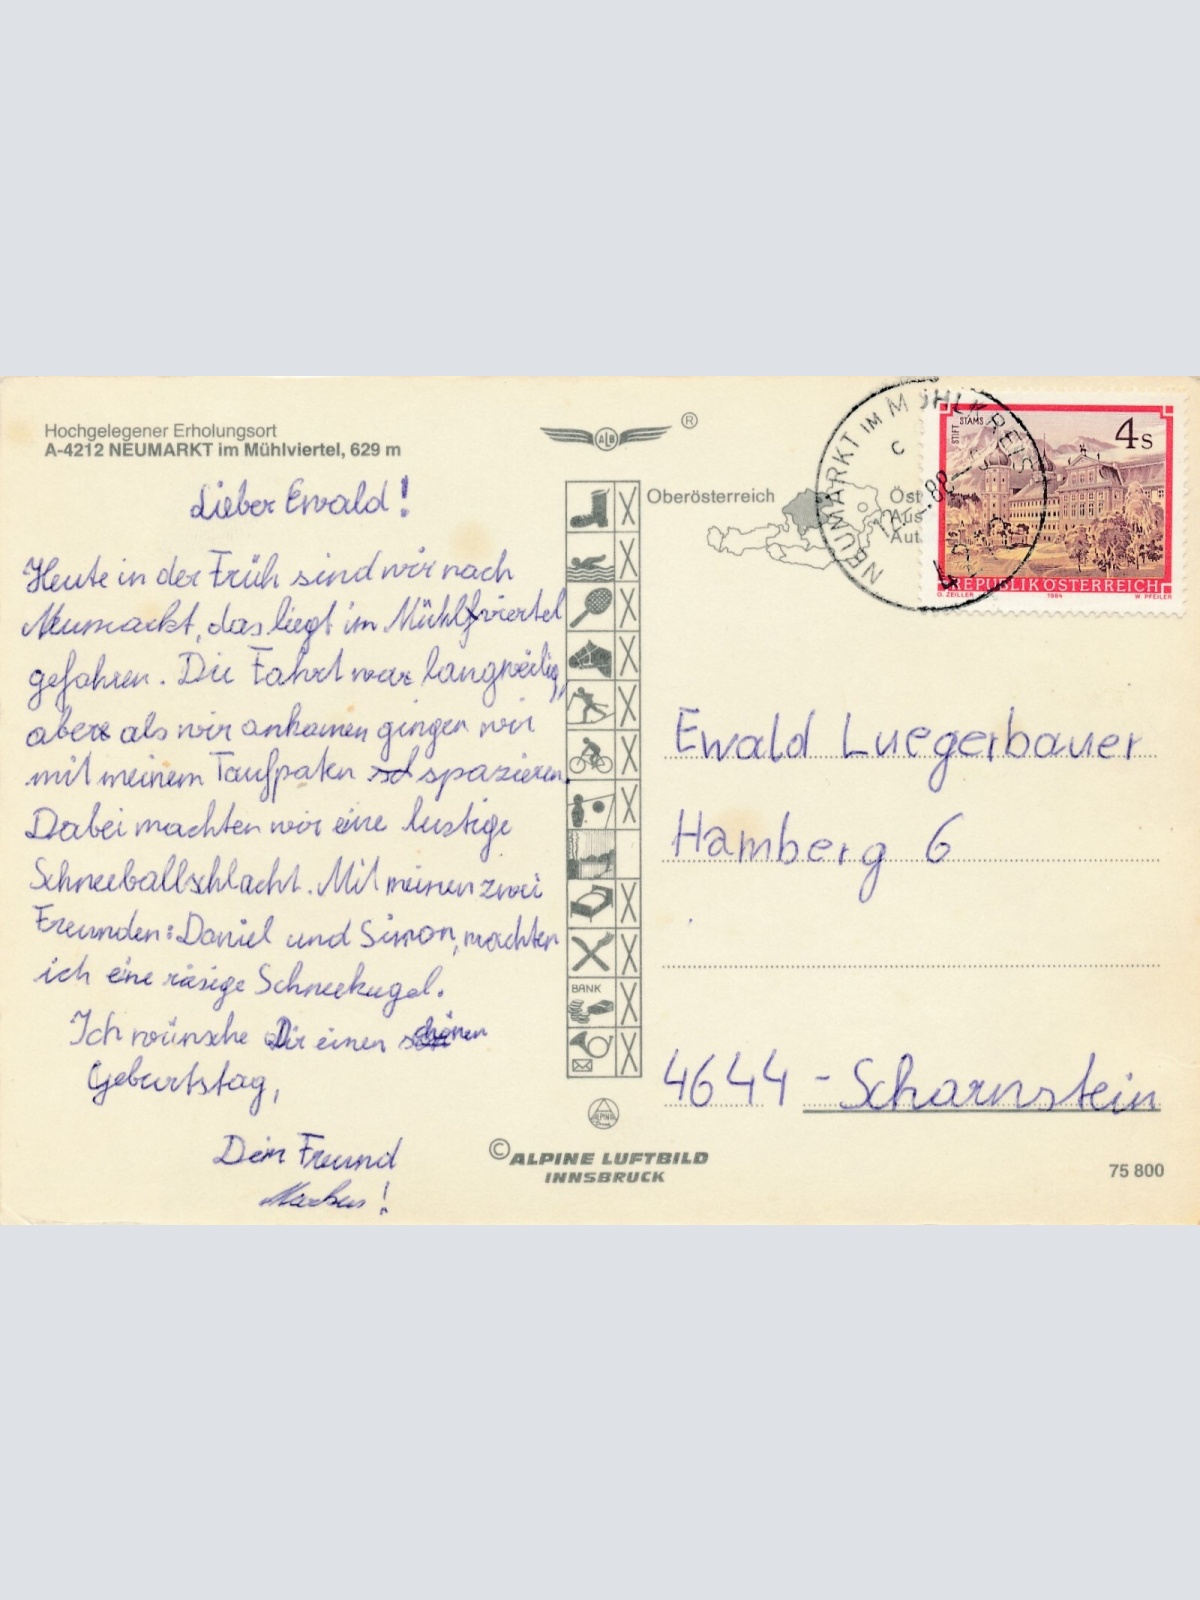 Hochgelegener Erholungsort
A-4212 NEUMARKT im Mühlviertel, 629 m
Lieber Ewald!
Heute in der Früh sind wir nach
Neumarkt, das liegt im Mühlviertel
gefahren. Die Fahrt war langweilig,
aber als wir ankamen gingen wir
mit meinem Taufpaten spazieren.
Dabei machten wir eine lustige
Schneeballschlacht. Mit meinen zwei
Freunden: Daniel und Simon, machten
ich eine räsige Schneekugel.
Ich wünsche Dir einen schönen
Geburtstag,
Dein Freund
Markus!
ALB
®
BANK
ALPINE
© ALPINE LUFTBILD
INNSBRUCK
Oberösterreich
Öst
Aus
Aut
NEUMARKT IM MÜHLKREIS
C
88
4212
STIFT
STAMS
4s
REPUBLIK ÖSTERREICH
G. ZEILLER 1984 W. PFEILER
Ewald Luegerbauer
Hamberg 6
4644 - Scharnstein
75 800